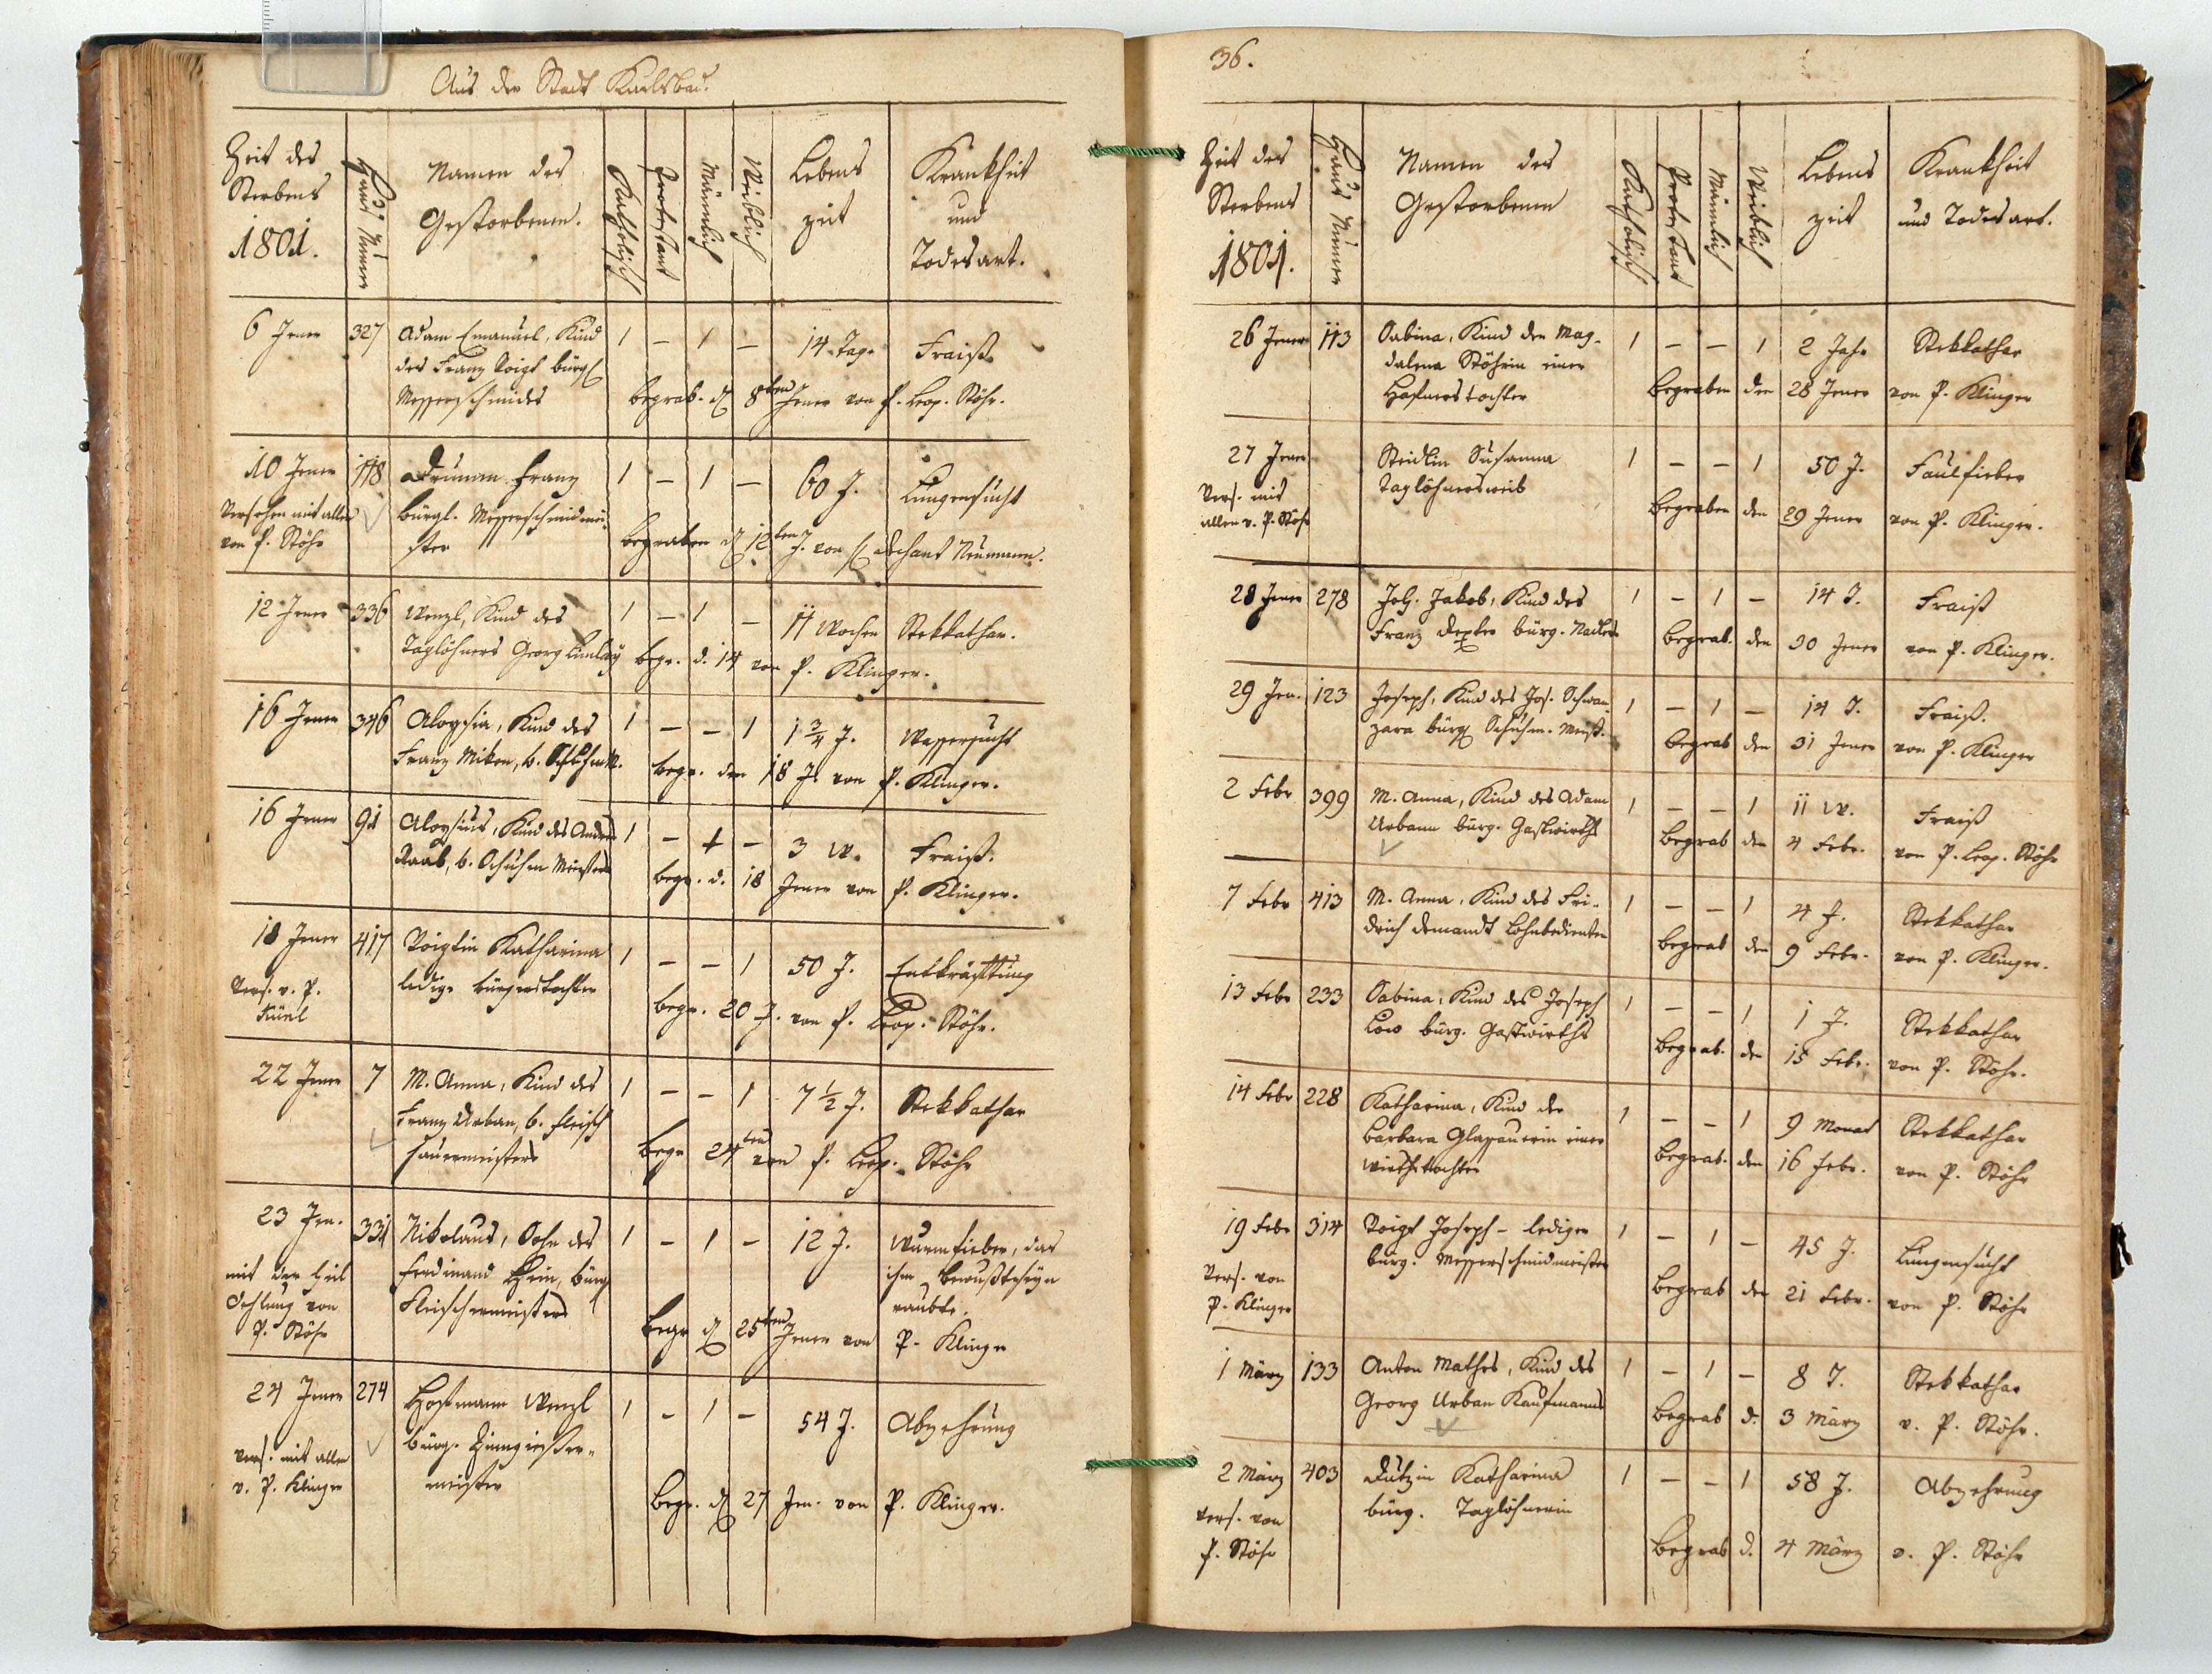 Aus der Stadt Karlsbad.
Zeit des
Sterbens
1801.
Haus Numer
Namen des
Gestorbenen.
Katholisch
Protestant
Männlich
Weiblich
Lebens
zeit
Krankheit
und
Todesart.
6 Jener 327 Adam Emanuel, Kind 1 – 1 – 14 Tag. Fraiß.
des Franz Voigt bürgl
Messerschmides begrab. d 8ten Jener von P. Leop. Stöhr.
10 Jener 118 Franz 1 – 1 – 60 J. Lungensucht
Versehen mit allen bürgl. Messerschmidmei-
von P. Stöhr ster begraben d 12ten J. von H dechant Neumann.
12 Jener 336 Wenzl, Kind des 1 – 1 – 11 Wochen Stekkathar.
Taglöhners Georg begr. d. 14 von P. Klinger.
16 Jener 346 Aloysia, Kind des 1 – – 1 1 3/4 J. Wassersucht
Franz Miken, b. begr. den 18 J. von P. Klinger.
16 Jener 91 Aloysius, Kind des Andre 1 – 1 – 3 W. Fraiß.
Raab, b. Schuhm Meisters begr. d. 18 Jener von P. Klinger.
18 Jener 417 Voigtin Katharina 1 – – 1 50 J. Entkräftung
Vers. v. P. ledige bürgerstochter
begr. 20 J. von P. Leop. Stöhr.
22 Jener 7 M. Anna, Kind des 1 – – 1 7 1/2 J. Stekkathar
Franz Urban, b. Fleisch
hauermeisters begr 24ten von P. Leop. Stöhr
23 Jen. 331 Nikolaus, Sohn des 1 – 1 – 12 J. Wurmfieber, das
mit der heil Ferdinand Hein, bürg ihm bewußtseyn
Oehlung von Fleischermeisters raubte.
P. Stöhr begr d 25ten Jener von P. Klinger
24 Jener 274 Hofmann Wenzl 1 – 1 – 54 J. Abzehrung
vers. mit allen bürg. Zinngießer-
v. P. Klinger meister
begr. d 27 Jen. von P. Klinger.
36.
Zeit des
Sterbens
1801.
Haus Numer
Namen des
Gestorbenen
Katholisch
Protestant
Männlich
Weiblich
Lebens
zeit
Krankheit
und Todesart.
26 Jener 113 Sabina, Kind der Mag- 1 – – 1 2 Jahr Stekkathar
dalena Stöhrin einer
Hafnerstochter begraben den 28 Jener von P. Klinger
27 Jener Steidlin Susanna 1 – – 1 50 J. Faulfieber
Vers. mit Taglöhnersweib
allen v. P. Stöhr begraben den 29 Jener von P. Klinger.
28 Jener 278 Joh. Jakob, Kind des 1 – 1 – 14 T. Fraiß
Franz bürg. Nadlers begrab. den 30 Jener von P. Klinger.
29 Jen. 123 Joseph, Kind des Jos. Schwan- 1 – 1 – 14 T. Fraiß.
zara bürgl Schuhm. Meist. begrab den 31 Jener von P. Klinger
2 Febr 399 M. Anna, Kind des Adam 1 – – 1 11 W. Fraiß
Urbann bürg. Gastwirths begrab den 4 Febr. von P. Leop. Stöhr
7 Febr 413 M. Anna, Kind des Fri- 1 – – 1 4 J. Stekkathar
drich Demandt Lohnbedienten begrab den 9 Febr. von P. Klinger.
13 Febr 233 Sabina, Kind des Joseph 1 – – 1 1 J. Stekkathar
Löw bürg. Gastwirths begrab. den 15 Febr. von P. Stöhr.
14 Febr 228 Katharina, Kind der 1 – – 1 9 Monat Stekkathar
Barbara Glassauerin einer
Wirthstochter begrab. den 16 Febr. von P. Stöhr
19 Febr 314 Voigt Joseph – lediger 1 – 1 – 45 J. Lungensucht
Vers. von bürg. Messerschmidmeister
P. Klinger begrab den 21 Febr. von P. Stöhr
1 März 133 Anton Mathes, Kind des 1 – 1 – 8 T. Stekkathar
Georg Urban Kaufmanns begrab d. 3 März v. P. Stöhr.
2 März 403 Katharina 1 – – 1 58 J. Abzehrung
vers. von bürg. Taglöhnerin
P. Stöhr begrab d. 4 März v. P. Stöhr